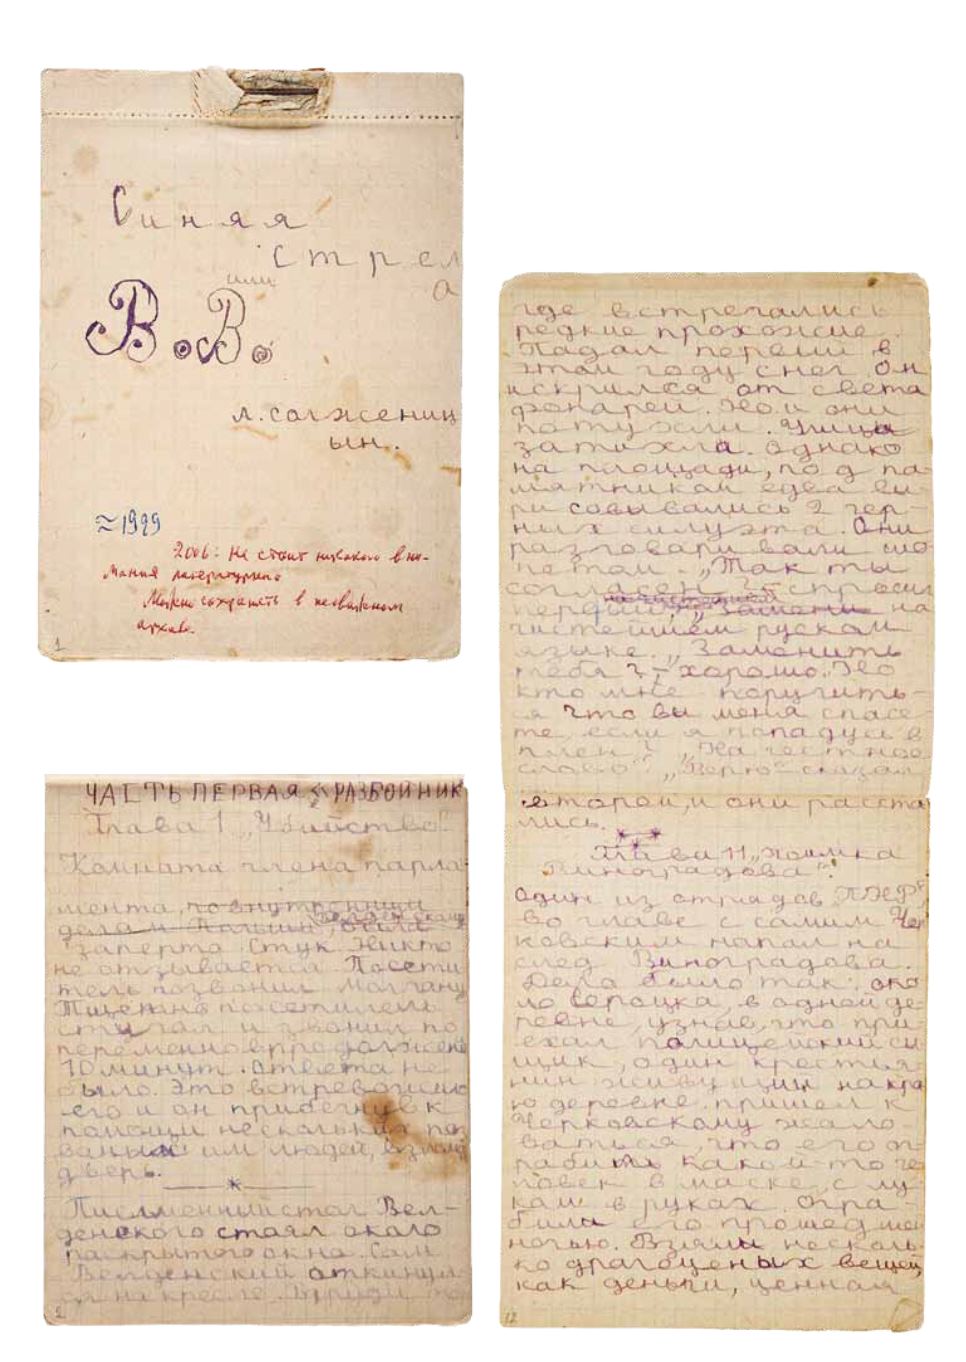 Синяя
Стрел
а
или
В.В.
л.солжениц
ын.
≈1929
2006: Не стоит никакого вни-
мания литературного
Можно сохранять в неважном
архиве.
1
ЧАСТЬ ПЕРВАЯ «РАЗБОЙНИК
Глава 1 „Убийство"
Комната члена парла-
мента, по внутренним
делам Польши, была
заперта. Стук. Никто
не отзывается. Посети
тель позвонил. Молчание
Тщетно посетитель
стучал и звонил по
переменно в продолжение
10 минут. Ответа не
было. Это встревожило
его и он прибегнув к
помощи нескольких поз
ванных им людей, взломал
дверь.
Письменный стол Вел-
денского стоял около
раскрытого окна. Сам
Велденский откинул
ся на кресле. В груди
2
где встречались
редкие прохожие.
Падал первый в
этом году снег. Он
искрился от света
фонарей. Но и они
потухли. Улица
затихла. Однако
на площади, под па-
мятником едва ви-
рисовывались 2 чер-
ных силуэта. Они
разговаривали шо
потом. „Так ты
согласен?" спросил
первый, „Замени на
чистейшем руском
языке. „Заменить
тебя? – хорошо. Но
кто мне поручить-
ся что вы меня спасе
те, если я попадусь в
плен?" „На честное
слово"! „Верю" сказал
второй, и они расста
лись.
Глава 11 „поимка
Виноградова".
Один из отрядов П.Н.Ф.
во главе с самим Чер
ковским напал на
след Виноградова.
Дело было так: око
ло Сероцка, в одной де-
ревне, узнав, что при-
ехал полицейский сы
щик, один крестья-
нин живущий на кра
ю деревне, пришел к
Черковскому жало-
ваться, что его о-
грабить какой-то че
ловек в маске, с лу-
ком в руках. Огра-
били его прошедшей
ночью. Взяли несколь-
ко драгоценых вещей,
как деньги, ценная
12